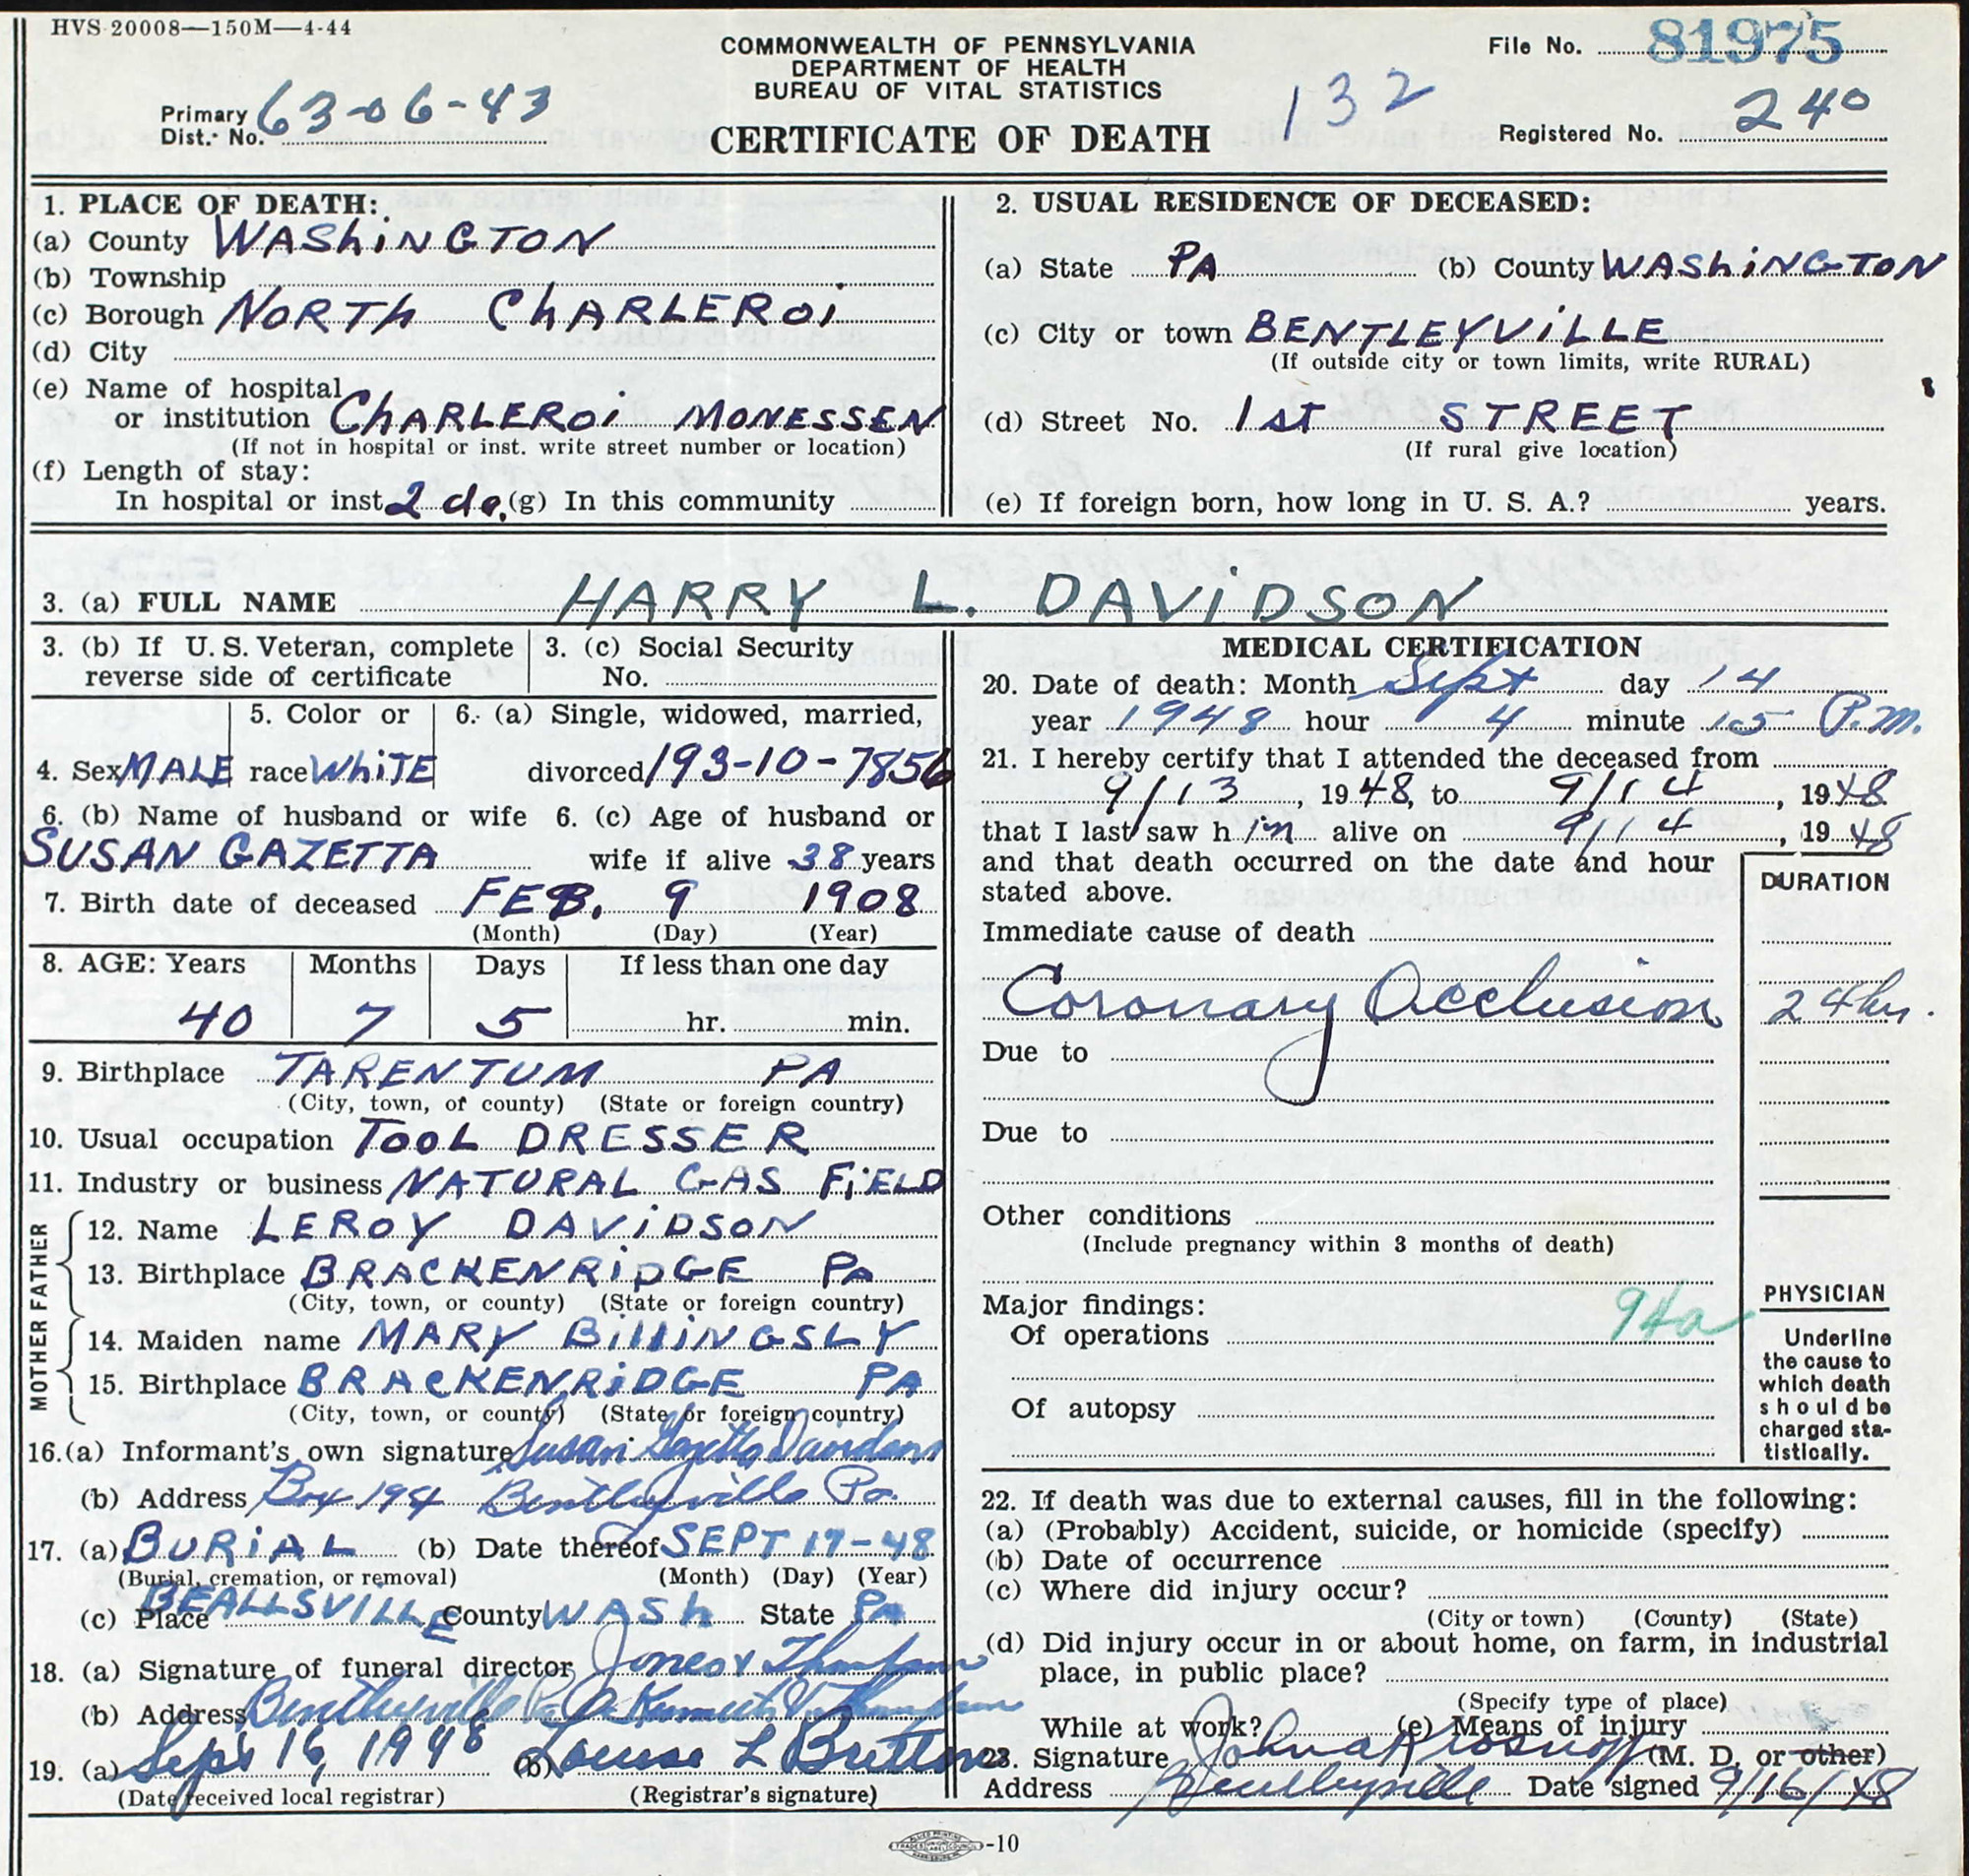 HVS-20008—150M—4-44
COMMONWEALTH OF PENNSYLVANIA
DEPARTMENT OF HEALTH
BUREAU OF VITAL STATISTICS
CERTIFICATE OF DEATH
File No. 81975
132
Primary Dist. No. 63-06-43
Registered No. 240
1. PLACE OF DEATH:
(a) County WAShiNGTON
(b) Township
(c) Borough NORTh ChARLEROi
(d) City
(e) Name of hospital
or institution ChARLEROi MONESSEN
(If not in hospital or inst. write street number or location)
(f) Length of stay:
In hospital or inst. 2 da. (g) In this community
2. USUAL RESIDENCE OF DECEASED:
(a) State PA (b) County WAShiNGTON
(c) City or town BENTLEYViLLE
(If outside city or town limits, write RURAL)
(d) Street No. 1st STREET
(If rural give location)
(e) If foreign born, how long in U. S. A.? years.
3. (a) FULL NAME HARRY L. DAViDSON
3. (b) If U. S. Veteran, complete
reverse side of certificate
3. (c) Social Security
No.
4. Sex MALE
5. Color or
race WhiTE
6. (a) Single, widowed, married,
divorced 193-10-7856
6. (b) Name of husband or wife
SUSAN GAZETTA
6. (c) Age of husband or
wife if alive 38 years
7. Birth date of deceased FEB. 9 1908
(Month) (Day) (Year)
8. AGE: Years Months Days If less than one day
40 7 5 hr. min.
9. Birthplace TARENTUM PA
(City, town, or county) (State or foreign country)
10. Usual occupation TOOL DRESSER
11. Industry or business NATURAL GAS FiELD
FATHER
12. Name LEROY DAViDSON
13. Birthplace BRACKENRiDGE PA
(City, town, or county) (State or foreign country)
MOTHER
14. Maiden name MARY BillINGSLY
15. Birthplace BRACKENRiDGE PA
(City, town, or county) (State or foreign country)
16.(a) Informant's own signature Susan Gazetta Davidson
(b) Address Box 194 Bentleyville Pa.
17. (a) BURiAL (b) Date thereof SEPT 17-48
(Burial, cremation, or removal) (Month) (Day) (Year)
(c) Place BEALLSVILLE County WASh State PA
18. (a) Signature of funeral director Jones & Thompson
(b) Address Bentleyville Pa Kenneth Thompson
19. (a) Sept 16, 1948 (b) Louise L Britton
(Date received local registrar) (Registrar's signature)
MEDICAL CERTIFICATION
20. Date of death: Month Sept day 14
year 1948 hour 4 minute 15 P.m.
21. I hereby certify that I attended the deceased from
9/13, 1948, to 9/14, 1948
that I last saw him alive on 9/14, 1948
and that death occurred on the date and hour
stated above.
DURATION
Immediate cause of death
Coronary Occlusion 24 hr.
Due to
Due to
Other conditions
(Include pregnancy within 3 months of death)
Major findings:
94a
Of operations
Of autopsy
PHYSICIAN
Underline
the cause to
which death
should be
charged sta-
tistically.
22. If death was due to external causes, fill in the following:
(a) (Probably) Accident, suicide, or homicide (specify)
(b) Date of occurrence
(c) Where did injury occur?
(City or town) (County) (State)
(d) Did injury occur in or about home, on farm, in industrial
place, in public place?
(Specify type of place)
While at work? (e) Means of injury
23. Signature John A Krosnoff (M. D. or other)
Address Bentleyville Date signed 9/16/48
-10